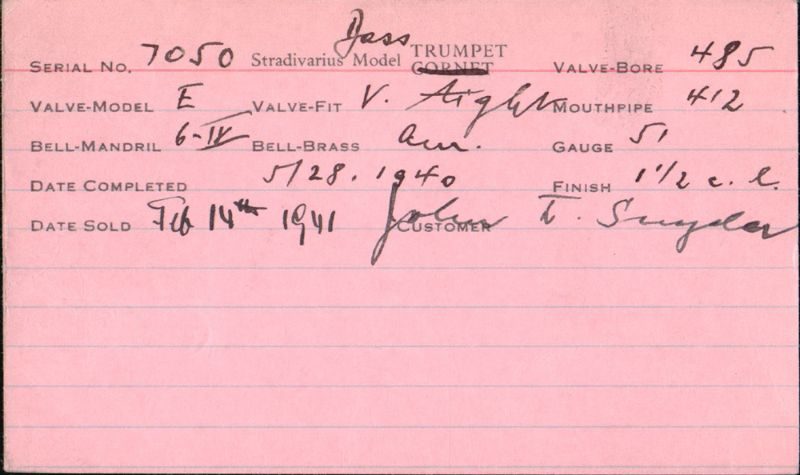 Bass
SERIAL NO. 7050 Stradivarius Model TRUMPET CORNET VALVE-BORE 485
VALVE-MODEL E VALVE-FIT V. tight MOUTHPIPE 412
BELL-MANDRIL 6-IV BELL-BRASS am. GAUGE 51
DATE COMPLETED 5/28. 1940 FINISH 1 1/2 c. l.
DATE SOLD Feb 14th 1941 CUSTOMER John T. Snyder